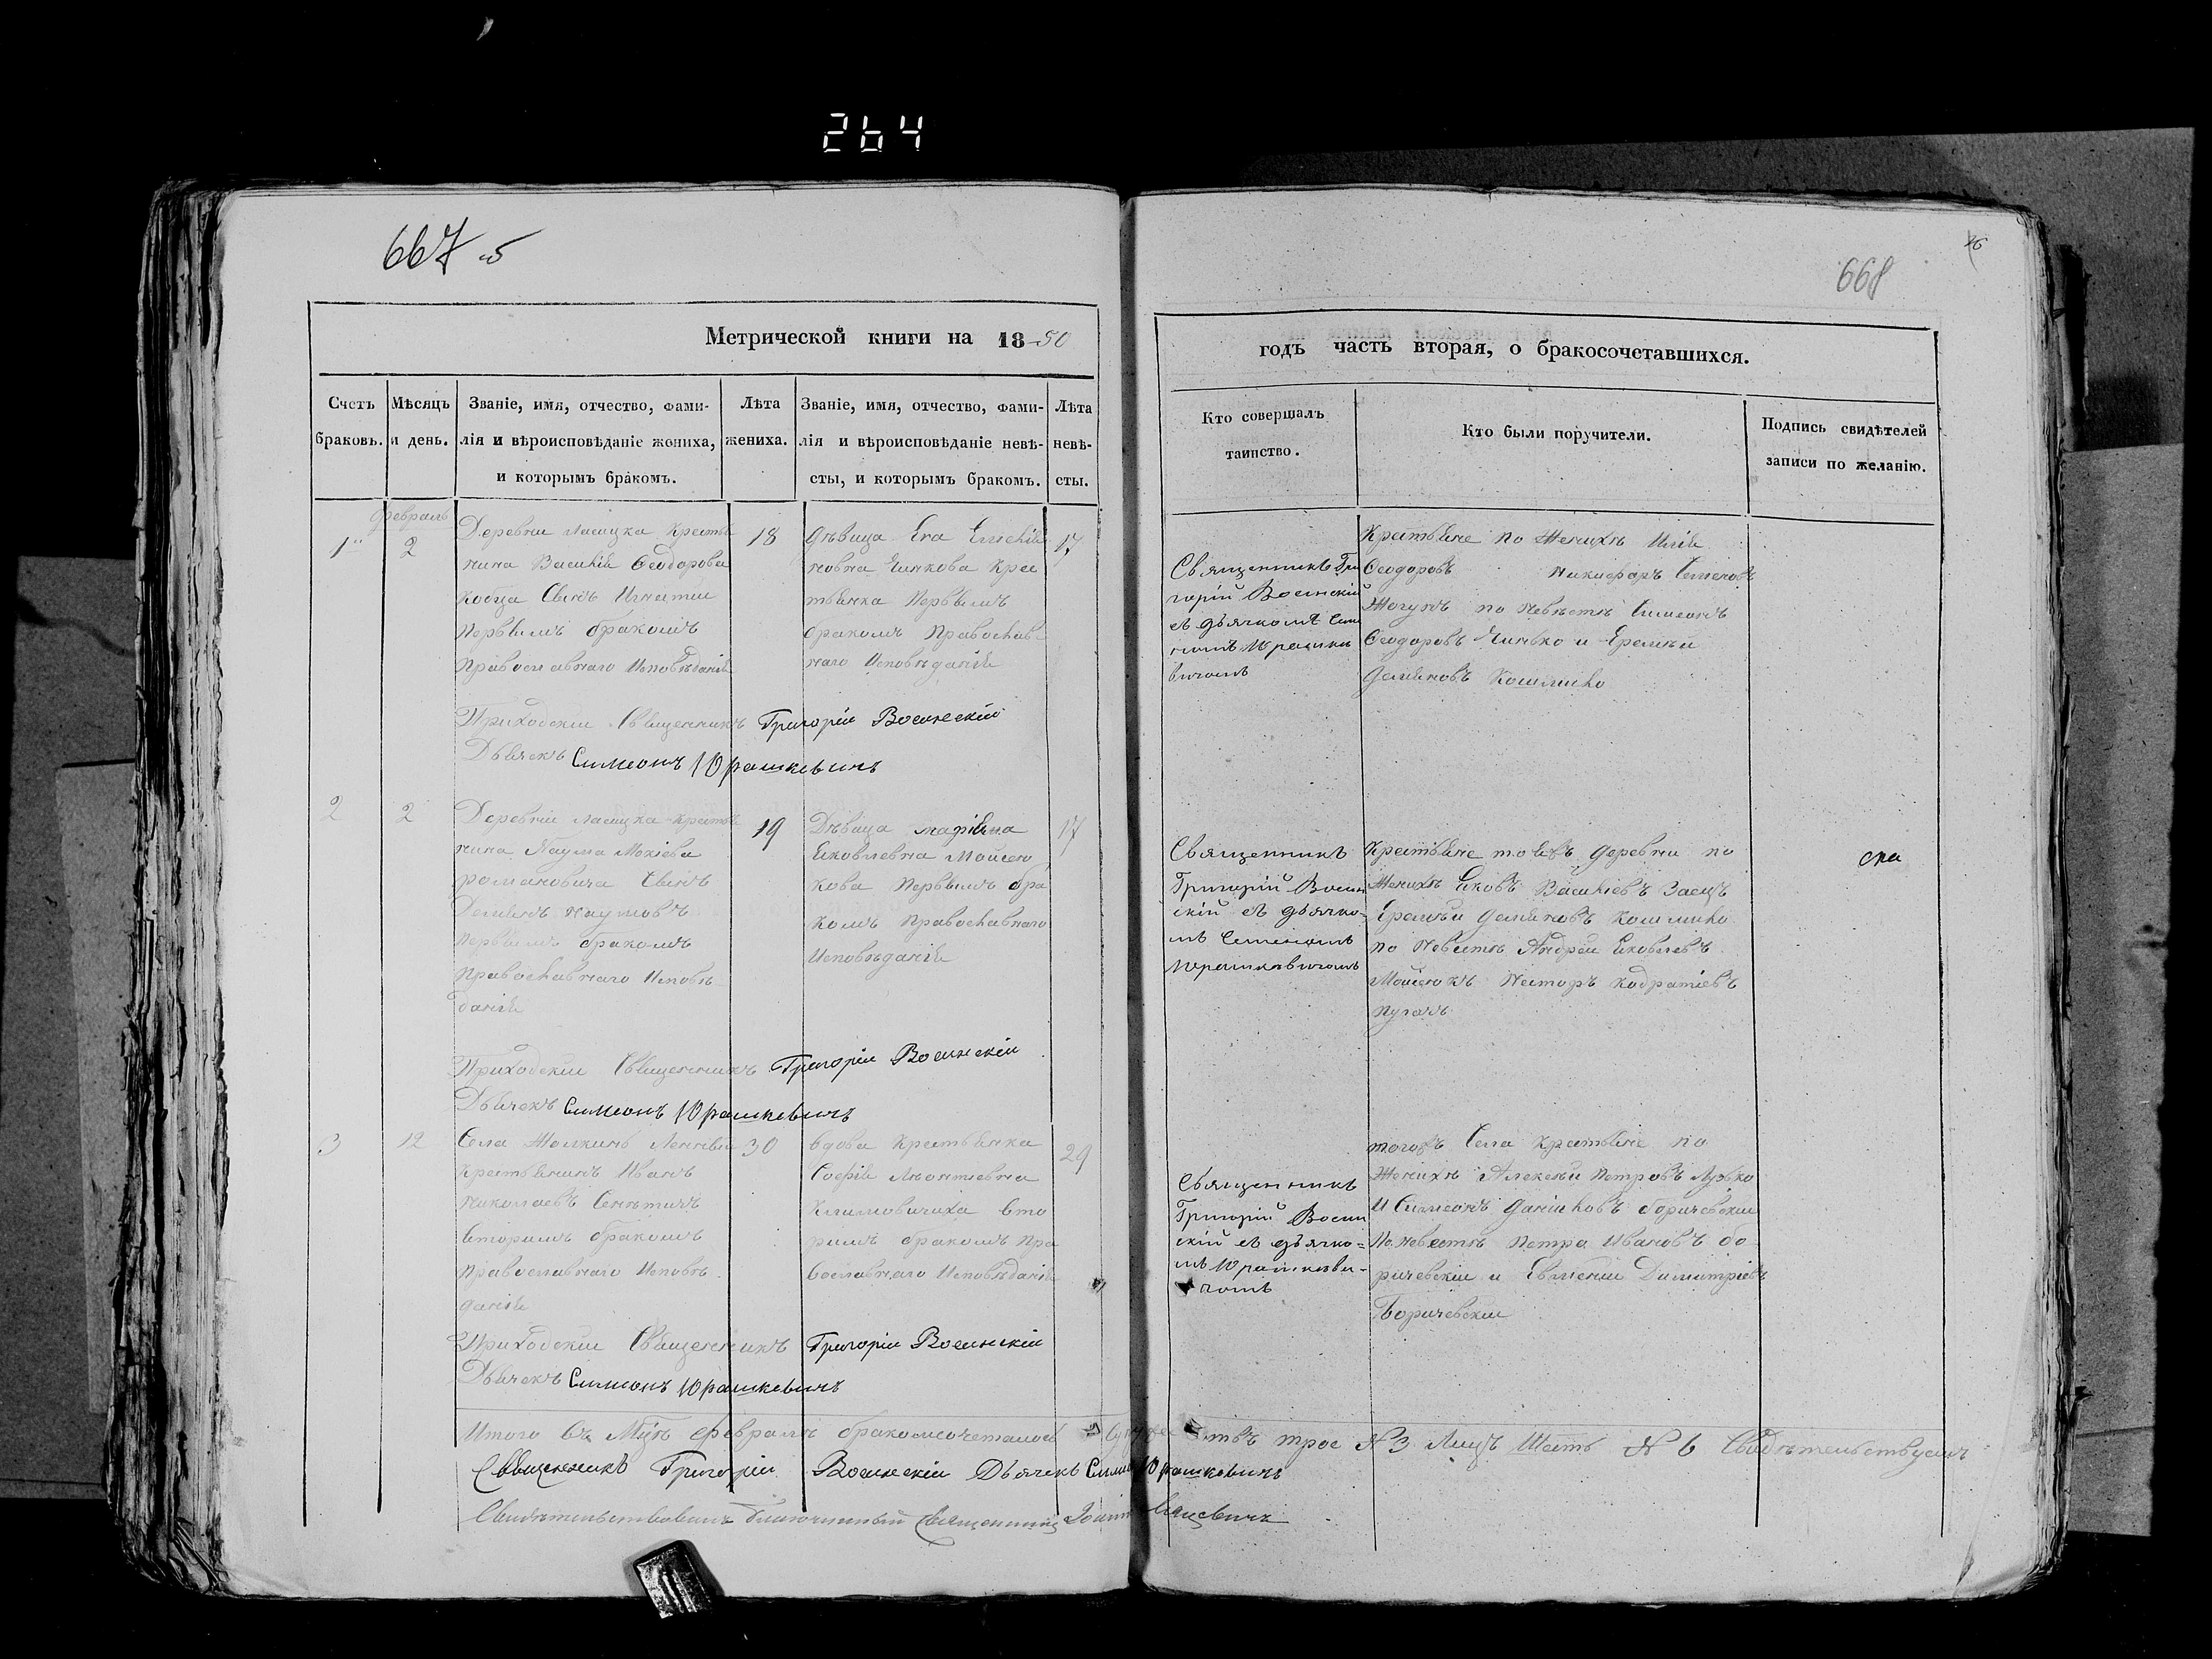 264
667
668
Метрической книги на 18-50
годъ часть вторая, о бракосочетавшихся.
Счетъ браковъ.
Мѣсяцъ и день.
Званіе, имя, отчество, фами-
лія и вѣроисповѣданіе жениха,
и которымъ бракомъ.
Лѣта
жениха.
Званіе, имя, отчество, фами-
лія и вѣроисповѣданіе невѣ-
сты, и которымъ бракомъ.
Лѣта
невѣ-
сты.
Кто совершалъ
таинство.
Кто были поручители.
Подпись свидѣтелей
записи по желанію.
Февраль
1
2
Деревни Ласицка Кресть
нина Василія Ѳеодорова
Сынъ Игнатии
Первымъ бракомъ
Православнаго Исповѣданія
18
Дѣвица Ева
Крес
тьянка Первымъ
бракомъ Православ
наго Исповѣданія
17
Священникъ Гри
горій Воеинскій
съ дьячкомъ
Крестьяне по Женихѣ Илія
Ѳеодоровъ Никифоръ Семеновъ
Жогунъ по Невѣстѣ Симеонъ
Ѳеодоровъ и Еремѣи
Демяновъ
Приходскіи Священникъ Григоріи Воеинскіи
Дьячекъ Симеонъ Юрашкевичъ
2
2
Деревни Ласицка Кресть
нина Наума Мокіева
романовича Сынъ
Демянъ Наумовъ
Первымъ бракомъ
Православнаго Исповѣ
данія
19
Дѣвица маріяна
Яковлевна
кова Первымъ бра
комъ Православнаго
Исповѣданія
17
Священникъ
Григорій Воеин
скій съ дьячко-
мъ Семеномъ
Юрашкевичомъ
Крестьяне тояжъ деревни по
Женихѣ Яковъ Василіевъ Заецъ
Еремѣи Демяновъ
по Невѣстѣ Андреи Яковлевъ
Несторъ Кодратіевъ
Пугачъ
Приходскіи Священникъ Григоріи Воеинскіи
Дьячекъ Симеонъ Юрашкевичъ
3
12
Села
Крестьянинъ Иванъ
Николаевъ
вторимъ бракомъ
Православнаго Исповѣ
данія
30
вдова Крестьянка
Софія Леонтіевна
Климовичиха вто
римъ бракомъ Пра
вославнаго Исповѣданія
29
Священникъ
Григорій Воеин
скій съ дьячко=
мъ Юрашкеви-
чомъ
тогожъ Села Крестьяне по
Женихѣ Алексѣи Петровъ
и Симеонъ Даніиловъ боричевскіи
По невѣстѣ Петра Ивановъ бо
ричевскіи и Евмении Димитріевъ
Боричевскіи
Приходскіи Священникъ Григоріи Воеинскіи
Дьячекъ Симеонъ Юрашкевичъ
Итого въ Мцѣ Февралѣ трое № 3 Лицъ Шесть № 6
Священникъ Григоріи Воеинскіи Дьячекъ Юрашкевичъ
благочинный Священникъ